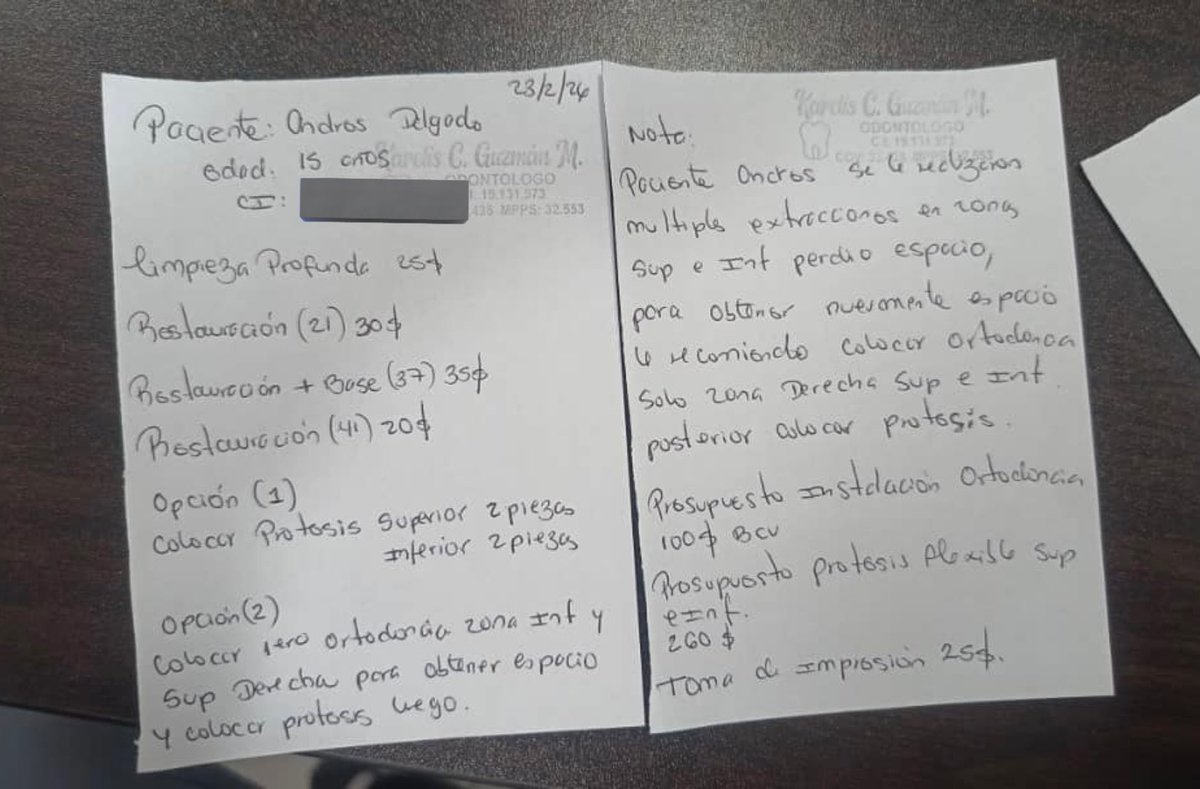 23/2/26
Paciente: Andros Delgado
edad: 15 años
Kardis C. Guzmán M.
ODONTOLOGO
15.131.973
CI:
435 MPPS: 32.553
limpieza Profunda 25$
Restauración (21) 30$
Restauración + Base (37) 35$
Restauración (41) 20$
Opción (1)
Colocar Protesis Superior 2 piezas
Inferior 2 piezas
Opción (2)
Colocar 1ero Ortodoncia zona Inf y
Sup Derecha para obtener espacio
y colocar protesis luego.
Kardis C. Guzmán M.
ODONTOLOGO
C.I: 15.131.973
Nota:
Paciente Andros se le realizaron
multiples extracciones en zona
Sup e Inf perdio espacio,
para obtener nuevamente espacio
le recomiendo colocar ortodoncia
Solo zona Derecha Sup e Inf.
posterior colocar protesis.
Presupuesto Instalación Ortodoncia
100$ BCV
Presupuesto protesis flexible Sup
e Inf.
260 $
Toma de impresión 25$.